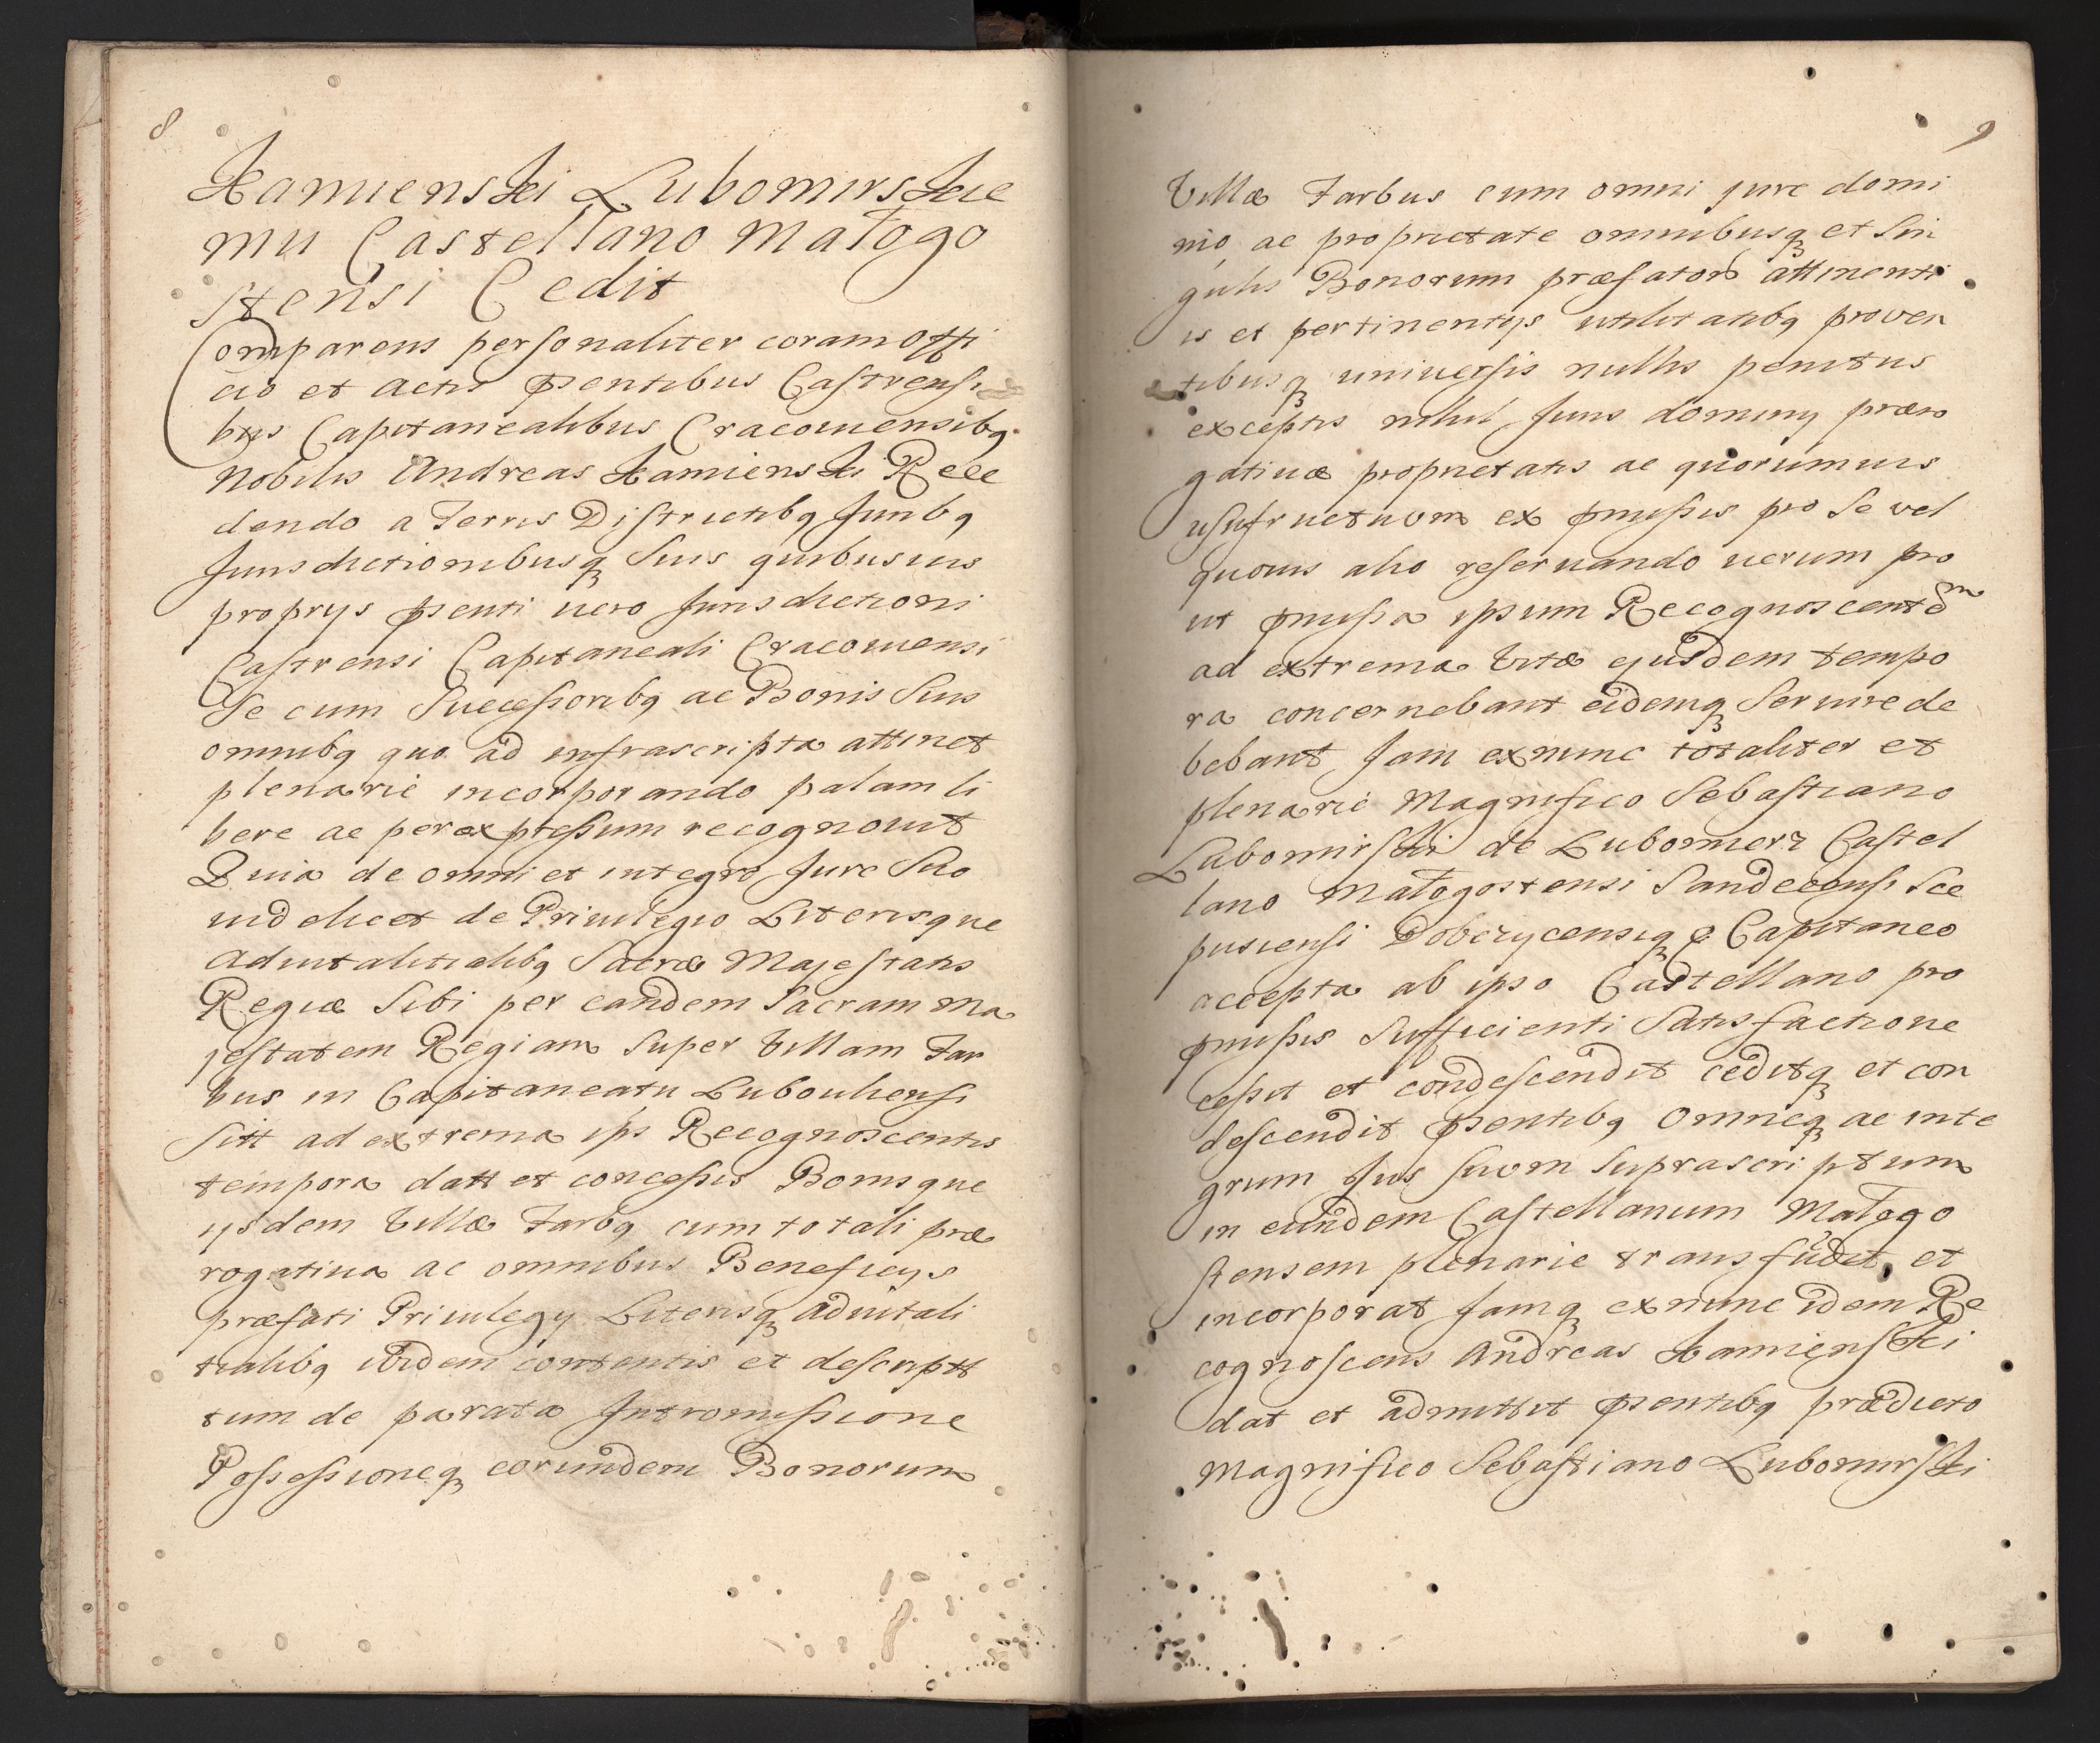 8
Kamienski Lubomirskie
mu Castellano Małogo
stensi Cedit
Comparens personaliter coram Offi
cio et Actis pñsentibus Castrensi
bus Capitanealibus Cracouiensibq
Nobilis Andreas Kamienski Rece
dendo a Terris Districtibq Juribq
Jurisdictionibusq Suis quibusuis
proprys pñsenti uero Jurisdictioni
Castrensi Capitaneali Cracouiensi
Se cum Successoribq ac Bonis Suis
omnibq quo ad infrascripta attinet
plenarie incorporando palam li
bere ac per expressum recognouit
Quia de omni et integro Jure Suo
uidelicet de Priuilegio Literisque
Aduitalitialibq Sacræ Majestatis
Regiæ Sibi per eandem Sacram Ma
jestatem Regiam Super Villam Far
bus in Capitaneatu Lubouliensi
Sitt ad extrema ips Recognoscentis
tempora datt et concessis Bonisque
ijsdem Villæ Farbq cum totali præ
rogatiua ac omnibus Beneficys
præfati Priuilegy Literisq aduitali
tialibq ibidem contentis et descriptt
tum de parata Intromissione
Possessioneq eorundem Bonorum
9
Villæ Farbus cum omni jure domi
nio ac proprietate omnibusq et Sin
gulis Bonorum præfatorum attinenti
is et pertinentys utilitatibq proven
tibusq uniuersis nullis penitus
exceptis nihil Juris dominy præro
gatiuæ proprietatis ac quorumuis
usufructuum ex pmissis pro Se vel
quouis alio reseruando uerum pro
ut pmissa ipsum Recognoscentem
ad extrema Vitæ ejusdem tempo
ra concernebant eidemq Seruire de
bebant Jam ex nunc totaliter et
plenarie Magnifico Sebastiano
Lubomirski de Lubomierz Castel
lano Małogostensi Sandecensi Sce
pusiensi Dobczycensiq &c Capitaneo
accepta ab ipso Castellano pro
pmissis Sufficienti Satisfactione
cessit et condescendit ceditq et con
descendit pñsentibq Omneq ac inte
grum Jus Suum Suprascriptum
in eundem Castellanum Małogo
stensem plenarie transfudit et
incorporat Jamq ex nunc idem Re
cognoscens Andreas Kamienski
dat et admittit pñsentibq prædicto
Magnifico Sebastiano Lubomirski